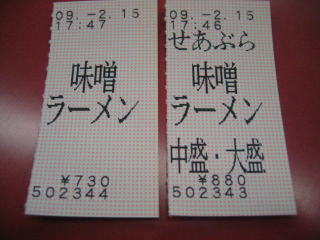 09.-2.15
17:47
味噌
ラーメン
¥730
502344
09.-2.15
17:46
せあぶら
味噌
ラーメン
中盛・大盛
¥880
502343